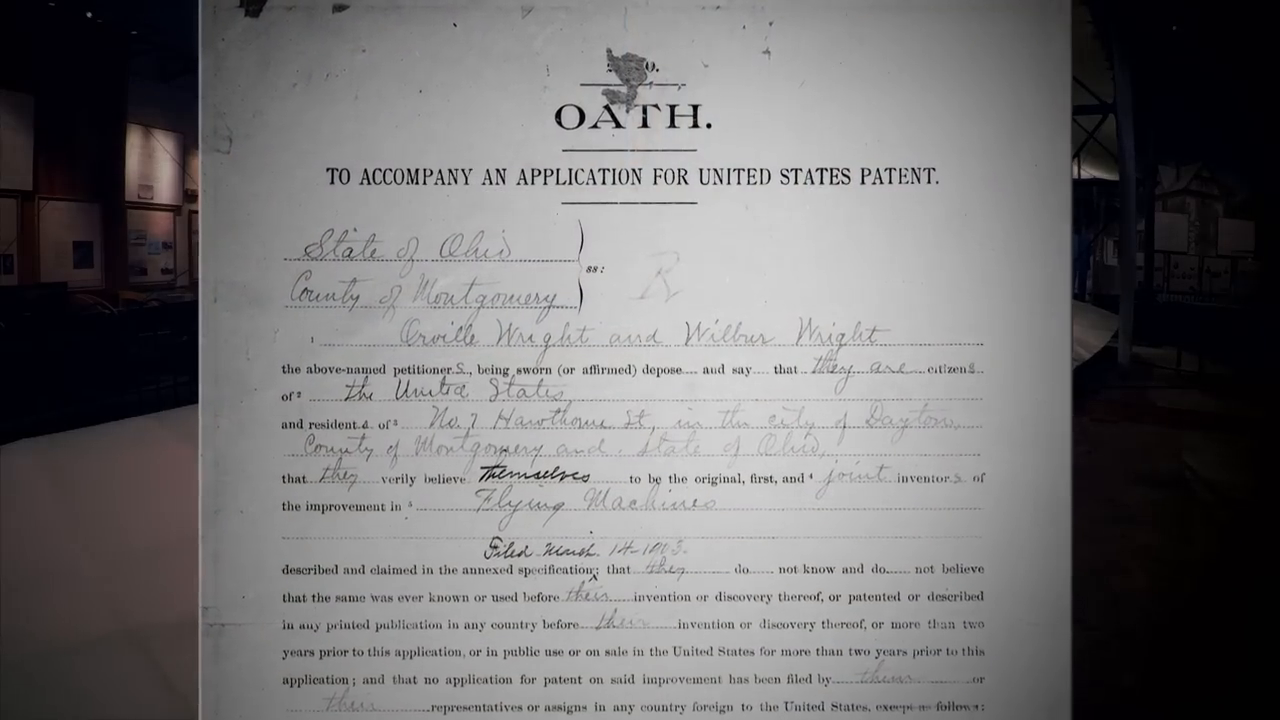 OATH.
TO ACCOMPANY AN APPLICATION FOR UNITED STATES PATENT.
State of Ohio
ss:
County of Montgomery
R
1 Orville Wright and Wilbur Wright
the above-named petitioner s, being sworn (or affirmed) depose and say that they are citizens
of 2 the United States,
and resident s of 3 No. 7 Hawthorne St., in the city of Dayton,
County of Montgomery and State of Ohio,
that they verily believe themselves to be the original, first, and 4 joint inventor s of
the improvement in 5 Flying Machines
Filed March 14-1903.
described and claimed in the annexed specification; that they do not know and do not believe
that the same was ever known or used before their invention or discovery thereof, or patented or described
in any printed publication in any country before their invention or discovery thereof, or more than two
years prior to this application, or in public use or on sale in the United States for more than two years prior to this
application; and that no application for patent on said improvement has been filed by them or
their representatives or assigns in any country foreign to the United States, except as follows: